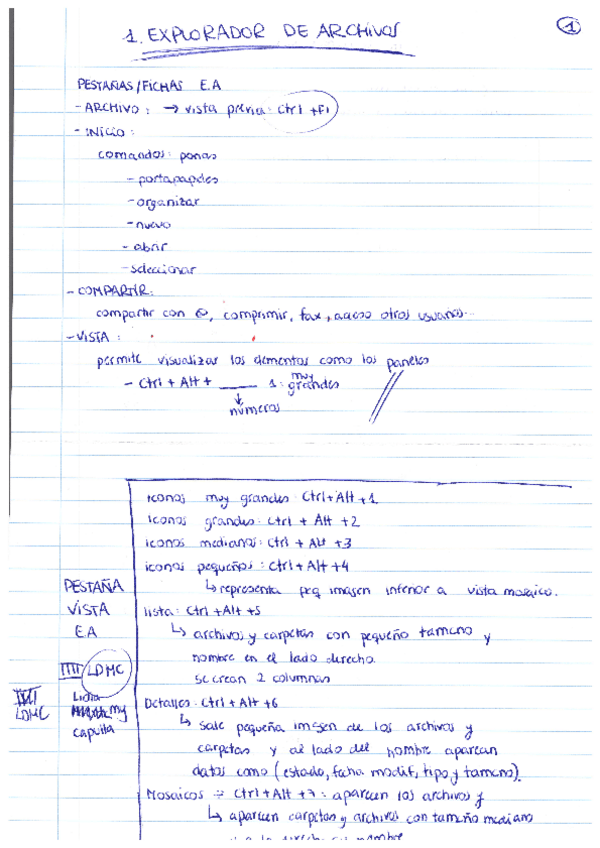 1. EXPLORADOR DE ARCHIVOS
1
PESTAÑAS/FICHAS E.A
- ARCHIVO: → vista previa: Ctrl + F1
- INICIO:
comandos:
- portapapeles
- organizar
- nuevo
- abrir
- seleccionar
- COMPARTIR:
compartir con @, comprimir, fax, acceso otros usuarios...
- VISTA:
permite visualizar los elementos como los paneles
- Ctrl + Alt + ____ 1: muy grandes
↓
números
iconos muy grandes: Ctrl+Alt+1
Iconos grandes: Ctrl + Alt +2
iconos medianos: Ctrl + Alt +3
iconos pequeños: Ctrl+Alt+4
↳ representa peq imagen inferior a vista mosaico.
PESTAÑA
VISTA
E.A
IIII LDMC
IIII
LDMC
Lidia
my
capulla
lista: Ctrl +Alt +5
↳ archivos y carpetas con pequeño tamano y
nombre en el lado derecho.
se crean 2 columnas
Detalles: Ctrl + Alt +6
↳ sale pequeña imagen de los archivos y
carpetas y al lado del nombre aparecen
datos como (estado, fecha modif, tipo y tamano).
Mosaicos → Ctrl+Alt +7: aparecen los archivos y
↳ aparecen carpetas y archivos con tamaño mediano
nombre